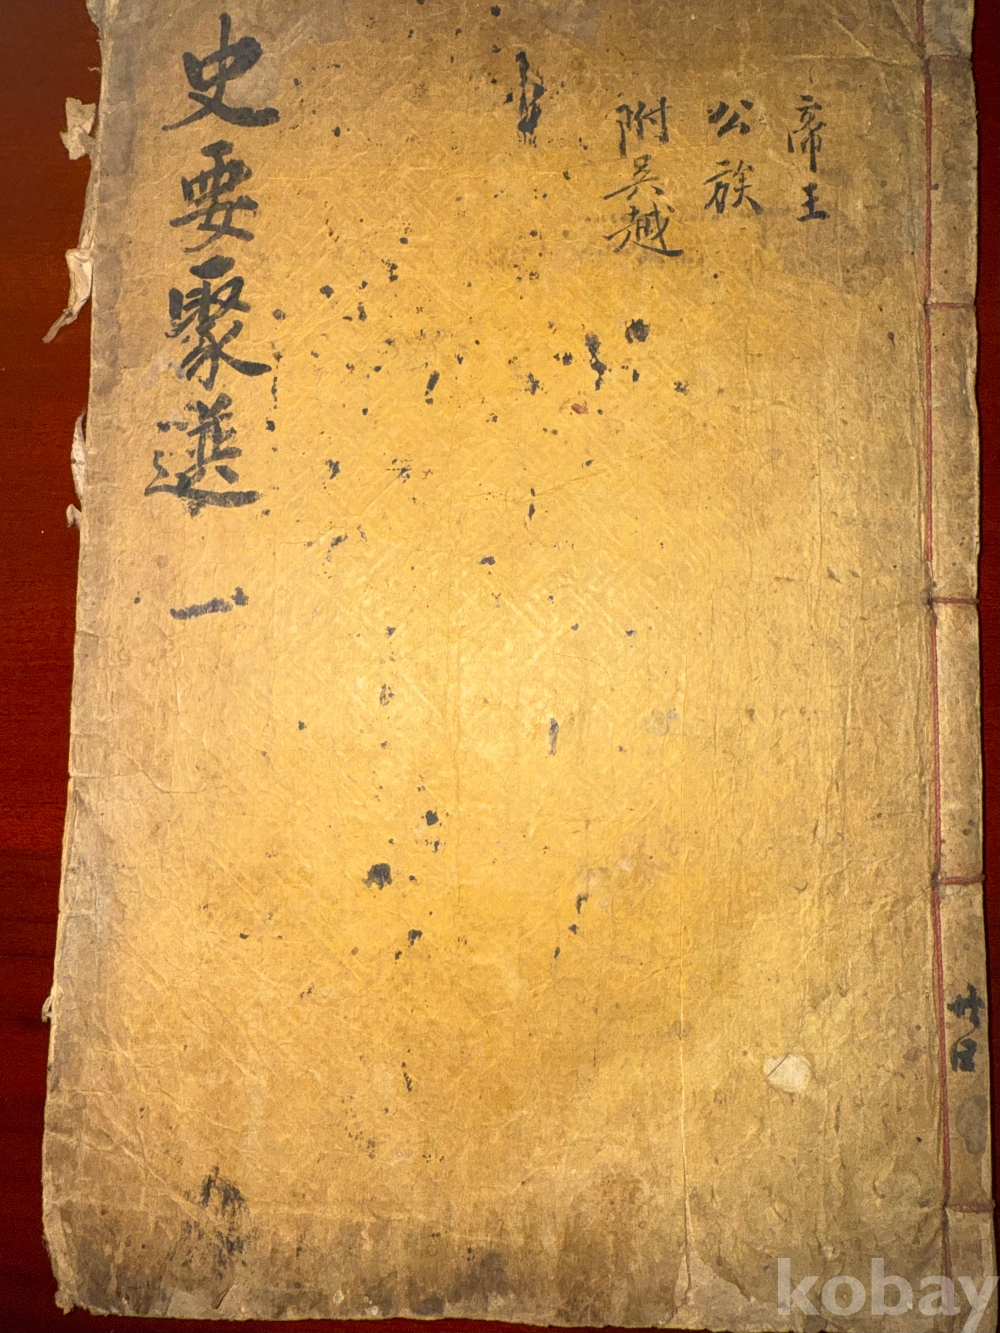 帝王
公族
附吳越
史要聚選 一
kobay